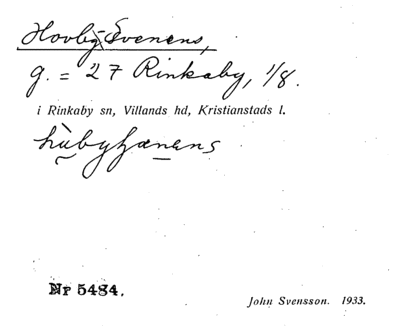 Hovby Svenens,
g. = 27 Rinkaby, 1/8.
i Rinkaby sn, Villands hd, Kristianstads l.
Nr 5484.
John Svensson. 1933.